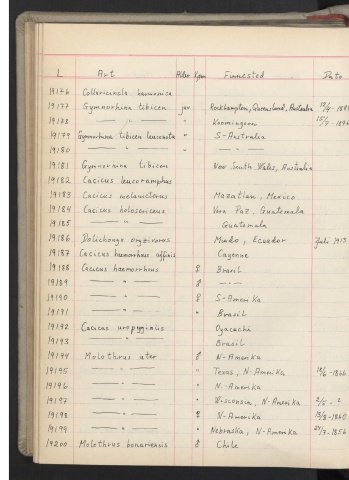 L Art Alder Kjønn Finnested Dato
19176 Collaricincla harmonica
19177 Gymnorhina tibicen juv. Rockhampton, Queensland, Australia
19178 — " — " Koomingona
19179 Gymnorhina tibicen leuconota " S-Australia
19180 — " — " — " —
19181 Gymnorhina tibicen New South Wales, Australia
19182 Cacicus leucoramphus
19183 Cacicus melanicterus Mazatlan, Mexico
19184 Cacicus holosericeus Vera Paz, Guatemala
19185 — " — Guatemala
19186 Dolichonyx oryzivorus Mindo, Ecuador Juli 1913
19187 Cacicus haemorrhous affinis Cayenne
19188 Cacicus haemorrhous ♀ Brasil
19189 — " — ♂ — " —
19190 — " — ♀ S-Amerika
19191 — " — " Brasil
19192 Cacicus uropygialis Oyacachi
19193 — " — Brasil
19194 Molothrus ater ♂ N-Amerika
19195 — " — " Texas, N-Amerika
19196 — " — " N-Amerika
19197 — " — " Wisconsin, N-Amerika
19198 — " — ♀ N-Amerika
19199 — " — " Nebraska, N-Amerika 24/7-1856
19200 Molothrus bonariensis ♂ Chile